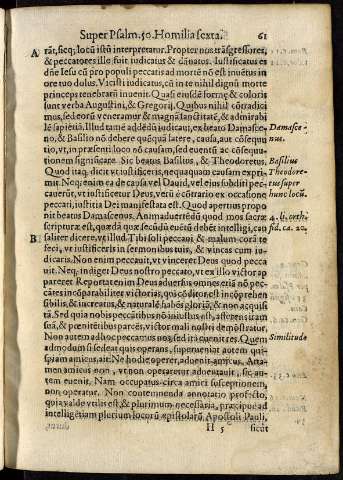 Super Psalm. 50. Homilia sexta. 61
A rāt, sicq; locū istū interpretatur. Propter nos trāsgressores,
& peccatores ille fuit iudicatus & dānatus. Iustificatus es
dn̄e Iesu cū pro populi peccatis ad mortē nō est inuētus in
ore tuo dolus. Vicisti iudicatus, cū in te nihil dignū morte
princeps tenebrarū inuenit. Quas eiusdē formę & coloris
sunt verba Augustini, & Gregorij. Quibus nihil cōtradici
mus, sed eorū veneramur & magnā sanctitatē, & admirabi
lē sapiētiā. Illud tamē addēdū iudicaui, ex beato Damasce-
no, & Basilio nō debere quēquā latere, causa, aut cōsequū
tio, vt, in pręsenti loco nō causam, sed euentū ac cōsequu-
tionem significare. Sic beatus Basilius, & Theodoretus.
Quod itaq; dicit vt iustificeris, nequaquam causam expri-
mit. Neq; enim ea de causa vel Dauid, vel eius subditi pec-
cauerūt, vt iustificetur Deus, verū ē cōtrario ex occasione
peccatorū, iustitia Dei manifestata est. Quod apertius propo
nit beatus Damascenus. Animaduertēdū quod mos sacræ
scripturæ est, quædā quæ secūdū euētū debēt intelligi, cau
B saliter dicere, vt illud. Tibi soli peccaui, & malum corā te
feci, vt iustificeris in sermonibus tuis, & vincas cum iu-
dicaris. Non enim peccauit, vt vinceret Deus quod pecca
uit. Neq; indiget Deus nostro peccato, vt ex illo victor ap
pareret. Reportat enim Deus aduersus omnes etiā nō pec-
cātes incōparabiliter victorias, qui cōditor est incōprehen
sibilis, & increatus, & naturalē habēs gloriā, & non acquisi
tā. Sed quia nobis peccātibus nō iniustus est, afferens iram
suā, & pœnitētibus parcēs, victor mali nostri demōstratur.
Non autem ad hoc peccamus, nos sed ita euenit res. Quem
admodum si sedeat quis operans, superueniat autem quis-
piam amicus, ait. Ne hodie operer, aduenit amicus. Atta-
men amicus non, vt non operaretur aduentauit, sic, au-
tem euenit. Nam occupatus circa amici susceptionem,
non operatur. Non contemnenda annotatio profecto,
quia valde vtilis est, & plurimum necessaria, præcipue ad
intelligētiam plurium locorū epistolarū Apostoli Pauli,
H 5 sicut
Damasce-
nus.
Basilius
Theodore-
tus super
hunc locū.
4. li. orth.
fid. ca. 20.
Similitudo